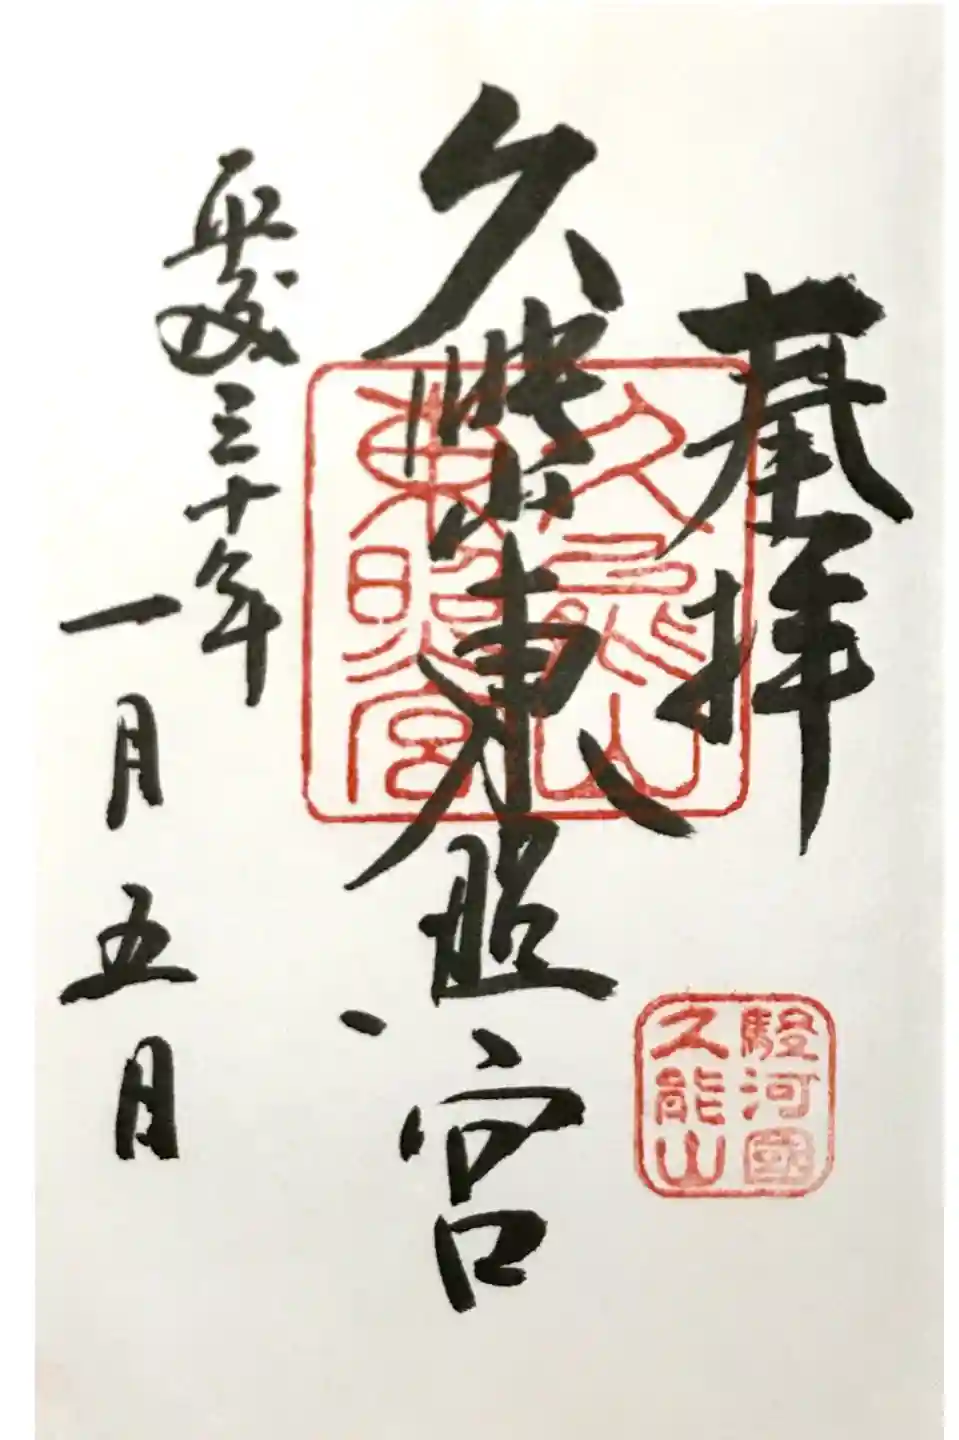 奉拝
駿河國
久能山
久能山東照宮
久能山
東照宮
平成三十年
一月五日